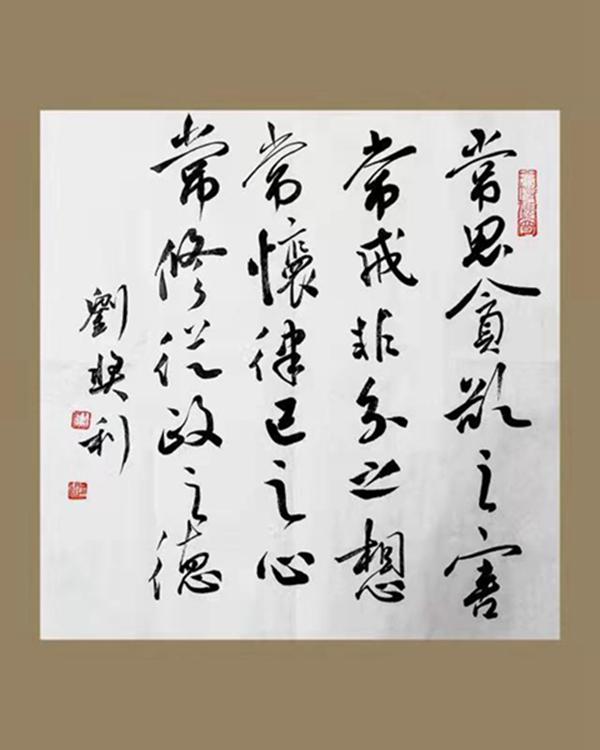 常思贪欲之害
常戒非分之想
常懷律己之心
常修從政之德
劉奖利